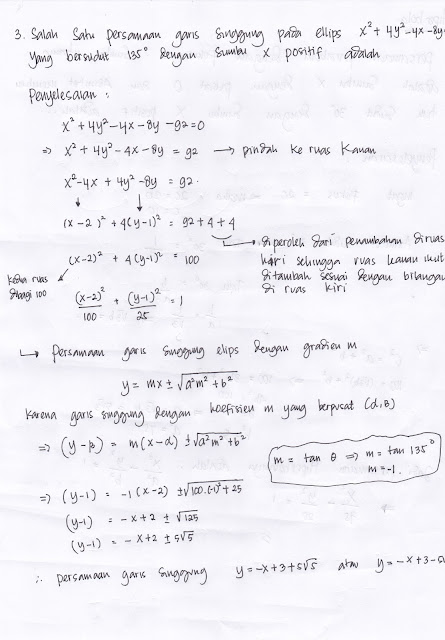 3. Salah satu persamaan garis singgung pada ellips x² + 4y² - 4x - 8y
yang bersudut 135° dengan sumbu x positif adalah
Penyelesaian :
x² + 4y² - 4x - 8y - 92 = 0
⇒ x² + 4y² - 4x - 8y = 92 → pindah ke ruas kanan
x² - 4x + 4y² - 8y = 92.
(x-2)² + 4(y-1)² = 92 + 4 + 4
(x-2)² + 4(y-1)² = 100
↳ diperoleh dari penambahan diruas
kiri sehingga ruas kanan ikut
ditambah sesuai dengan bilangan
di ruas kiri
kedua ruas
dibagi 100
(x-2)²/100 + (y-1)²/25 = 1
↳ Persamaan garis singgung elips dengan gradien m
y = mx ± √a²m² + b²
karena garis singgung dengan koefisien m yang berpusat (α,β)
⇒ (y-β) = m(x-α) ± √a²m² + b²
m = tan θ ⇒ m = tan 135°
m = -1.
⇒ (y-1) = -1(x-2) ± √100.(-1)² + 25
(y-1) = -x+2 ± √125
(y-1) = -x+2 ± 5√5
∴ persamaan garis singgung y = -x+3+5√5 atau y = -x+3-5